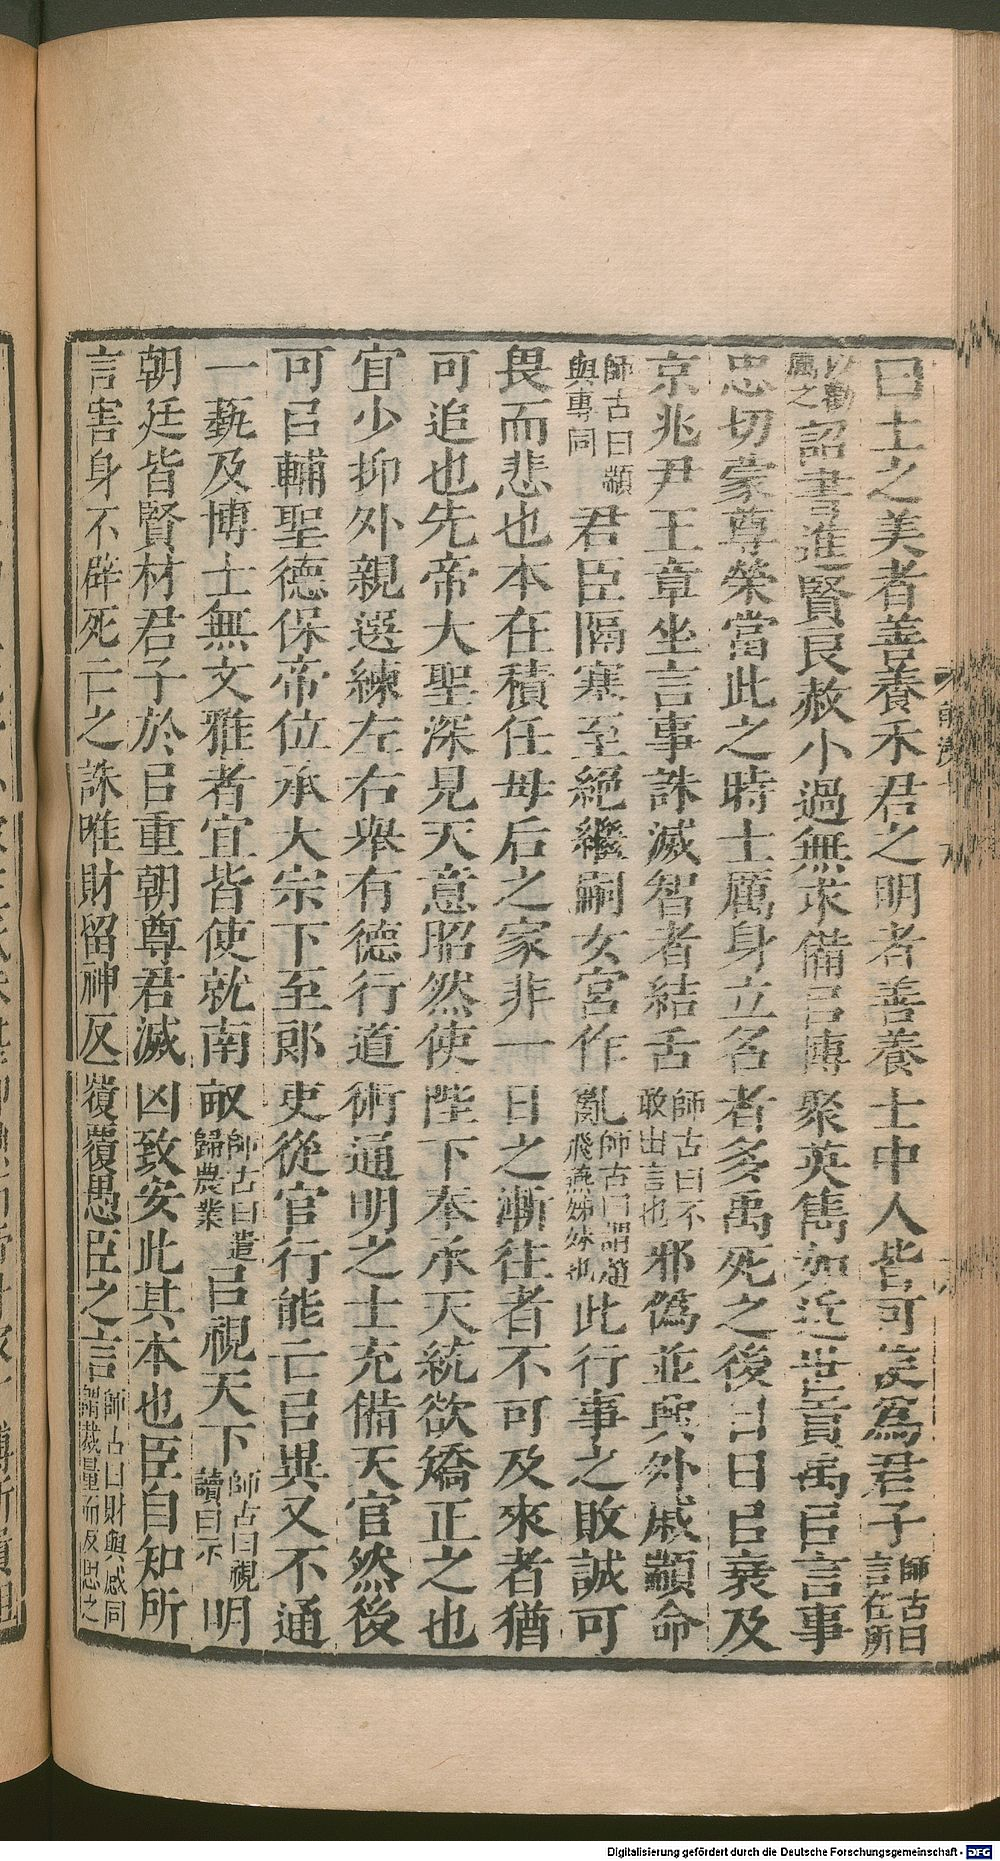 曰士之美者善養禾君之明者善養士中人皆可使爲君子師古曰言在所
以勸厲之詔書進賢良赦小過無求備㠯博聚英雋如近世貢禹㠯言事
忠切蒙尊榮當此之時士厲身立名者多禹死之後日日㠯衰及
京兆尹王章坐言事誅滅智者結舌師古曰不敢出言也邪僞並興外戚顓命
師古曰顓與專同君臣隔塞至絕繼嗣女宮作亂師古曰謂趙飛燕姊妹也此行事之敗誠可
畏而悲也本在積任母后之家非一日之漸往者不可及來者猶
可追也先帝大聖深見天意昭然使陛下奉承天統欲矯正之也
宜少抑外親選練左右舉有德行道術通明之士充備天官然後
可㠯輔聖德保帝位承大宗下至郞吏從官行能亡㠯異又不通
一藝及博士無文雅者宜皆使就南畝師古曰遣歸農業㠯視天下師古曰視讀曰示明
朝廷皆賢材君子於㠯重朝尊君滅凶致安此其本也臣自知所
言害身不辟死亡之誅唯財留神反覆覆愚臣之言師古曰財與裁同謂裁量而反思之
前漢
Digitalisierung gefördert durch die Deutsche Forschungsgemeinschaft - DFG